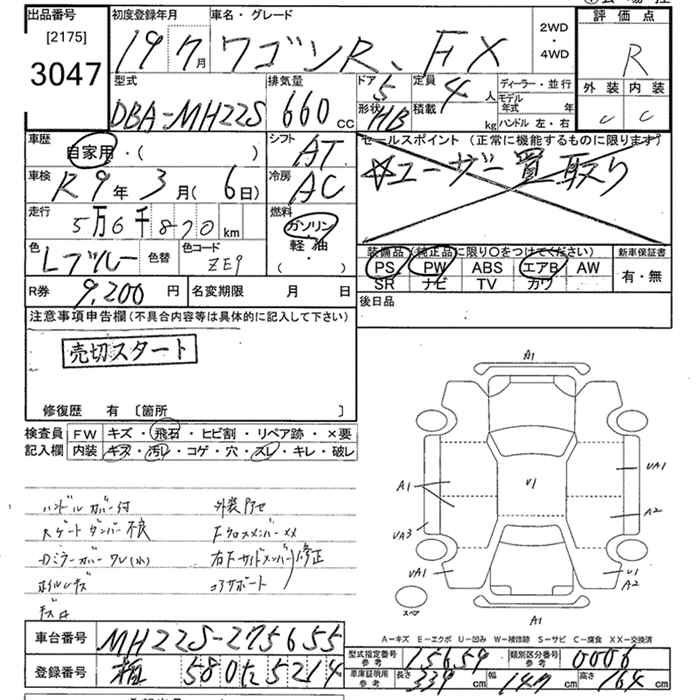 出品番号 初度登録年月 車名・グレード 評価点
[2175] 19年 7月 ワゴンR、FX 2WD・4WD R
3047
型式 排気量 ドア 5 定員 4人 ディーラー・並行 外装 内装
DBA-MH22S 660cc 形状 HB 積載 kg モデル年式 年 C C
ハンドル 左・右
車歴 自家用・( ) シフト AT セールスポイント(正常に機能するものに限ります)
☆ユーザー買取り
車検 R9年 3月(6日) 冷房 AC
走行 5万6千870km 燃料 ガソリン
軽・油
( ・ )
色 Lブルー 色替 色コード ZE9
装備品(純正品に限り〇をつけてください) 新車保証書
PS PW ABS エアB AW 有・無
SR ナビ TV カワ
R券 9,200円 名変期限 月 日 後日品
注意事項申告欄(不具合内容等は具体的に記入して下さい)
売切スタート
修復歴 有〔箇所 〕
検査員 FW キズ・飛石・ヒビ割・リペア跡・×要
記入欄 内装 キズ・汚レ・コゲ・穴・スレ・キレ・破レ
ハンドルカバー付 外装
Rゲートダンパー不良 FクロスメンバーXX
ドミラーカバー ワレ(小) 右下サイドメンバー 修正
ホイルキズ コアサポート
A1
UA1
A1 U1 A2
UA3
UA1 U1
A2
スペア A1
A-キズ E-エクボ U-凹み W-補修跡 S-サビ C-腐食 XX-交換済
車台番号 MH22S-275655
型式指定番号 参考 15659 類別区分番号 参考 0006
登録番号 580 た 5214
車庫証明用 参考 長さ 339cm 幅 147cm 高さ 164cm